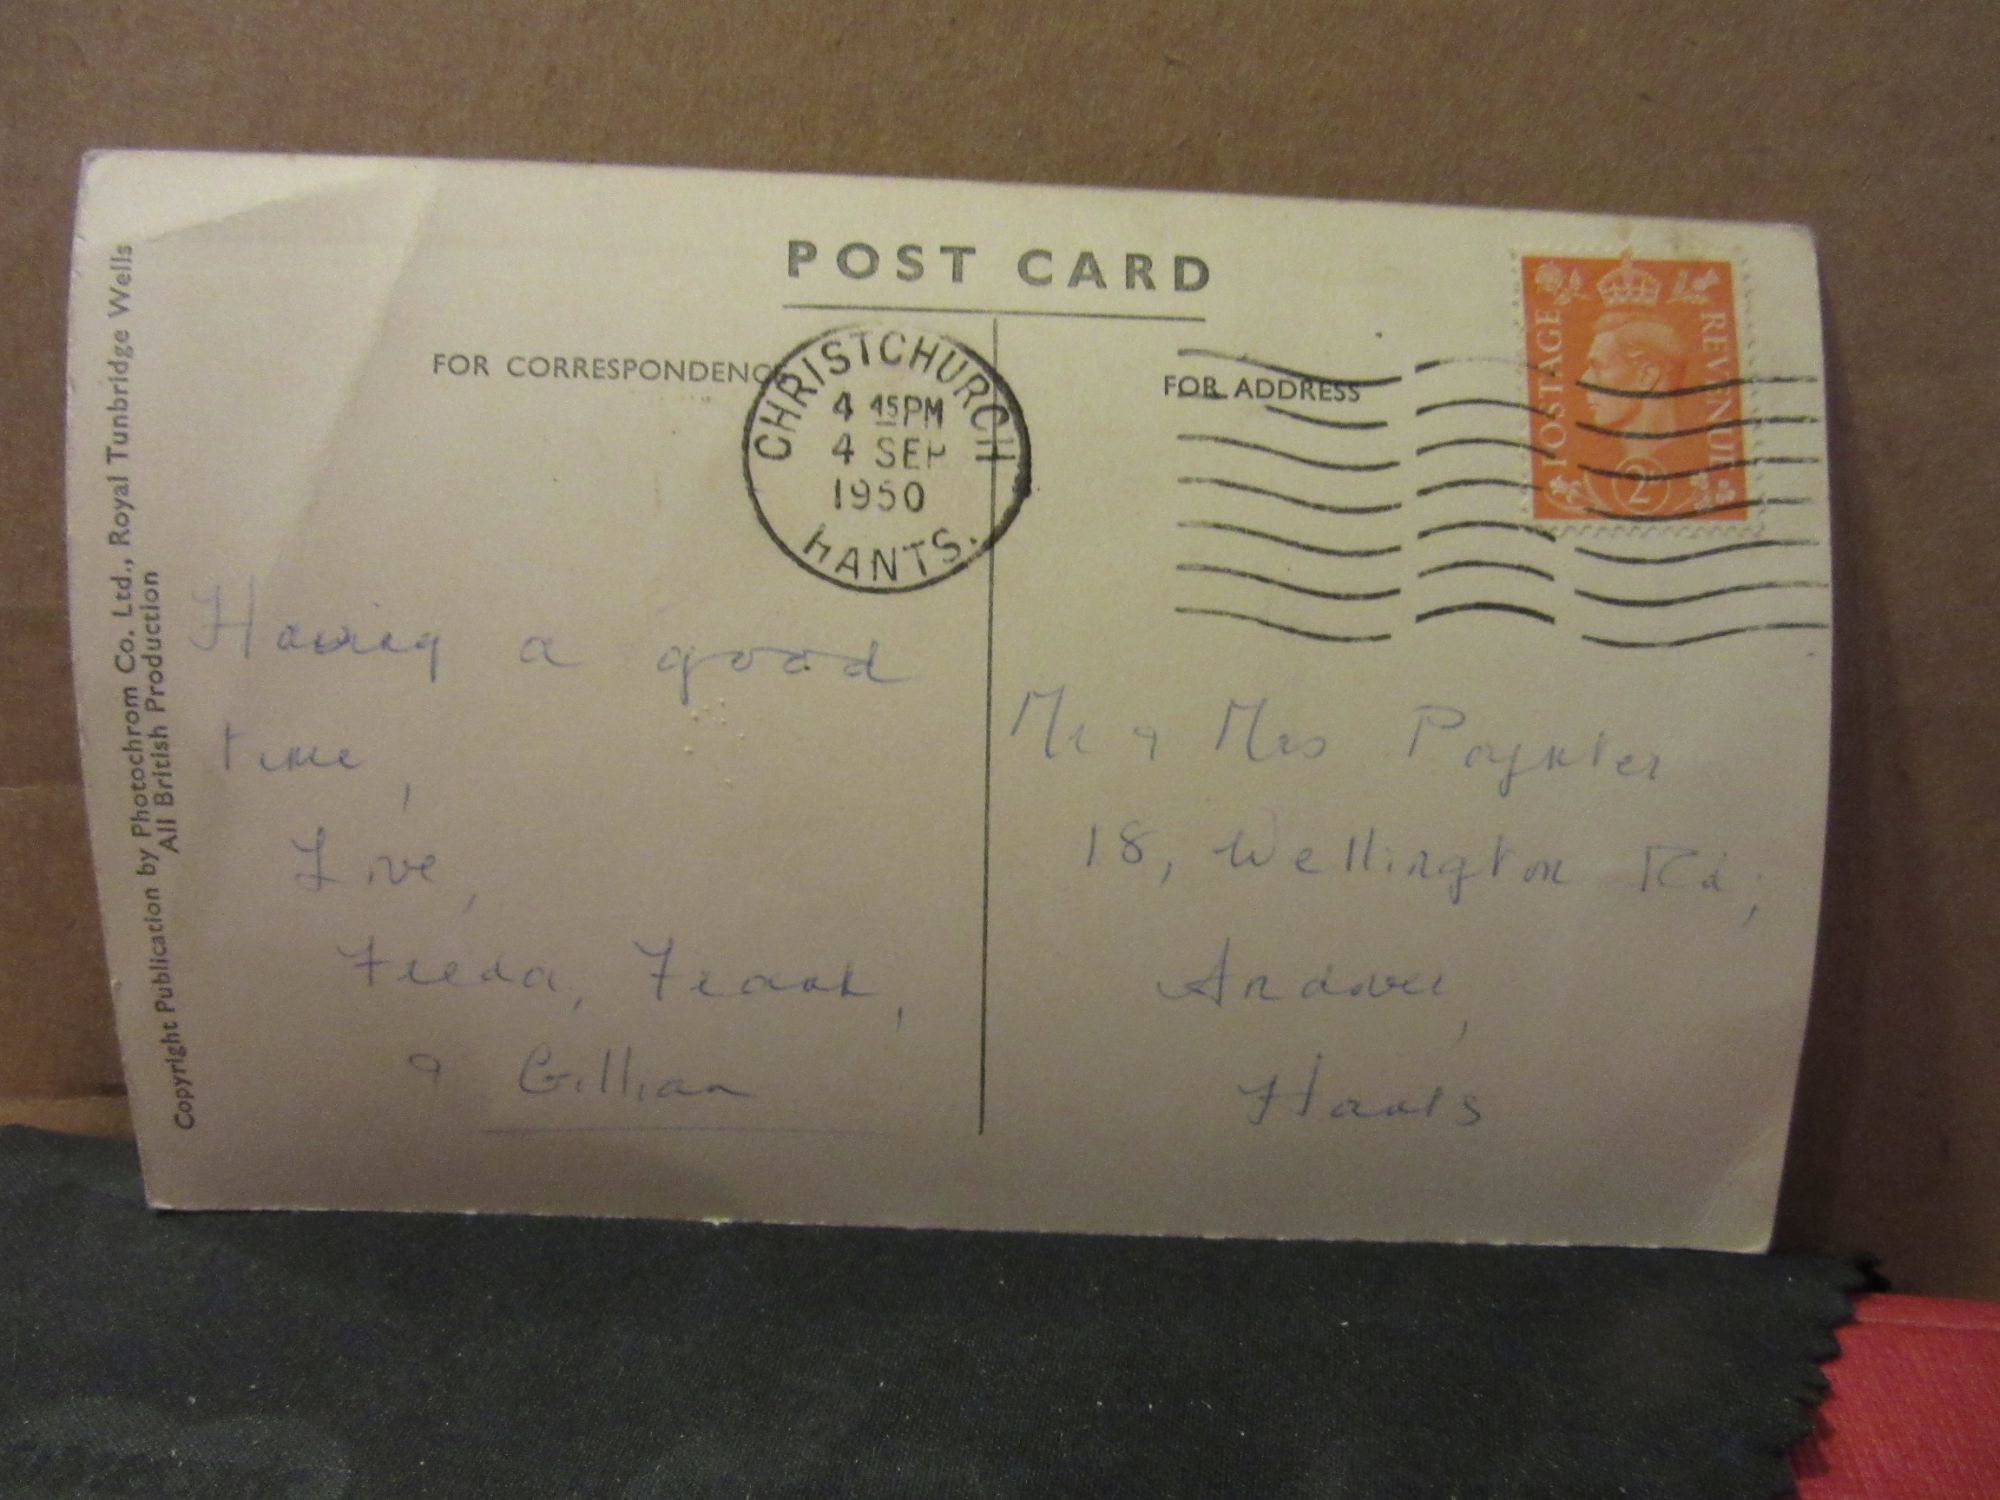 POST CARD
FOR CORRESPONDENCE
FOR ADDRESS
CHRISTCHURCH
4 45PM
4 SEP
1950
HANTS.
POSTAGE REVENUE
2D
Having a good
time,
Love,
Freda, Frank,
& Gillian
Mr & Mrs Poynter
18, Wellington Rd,
Andover,
Hants
Copyright Publication by Photochrom Co. Ltd., Royal Tunbridge Wells
All British Production